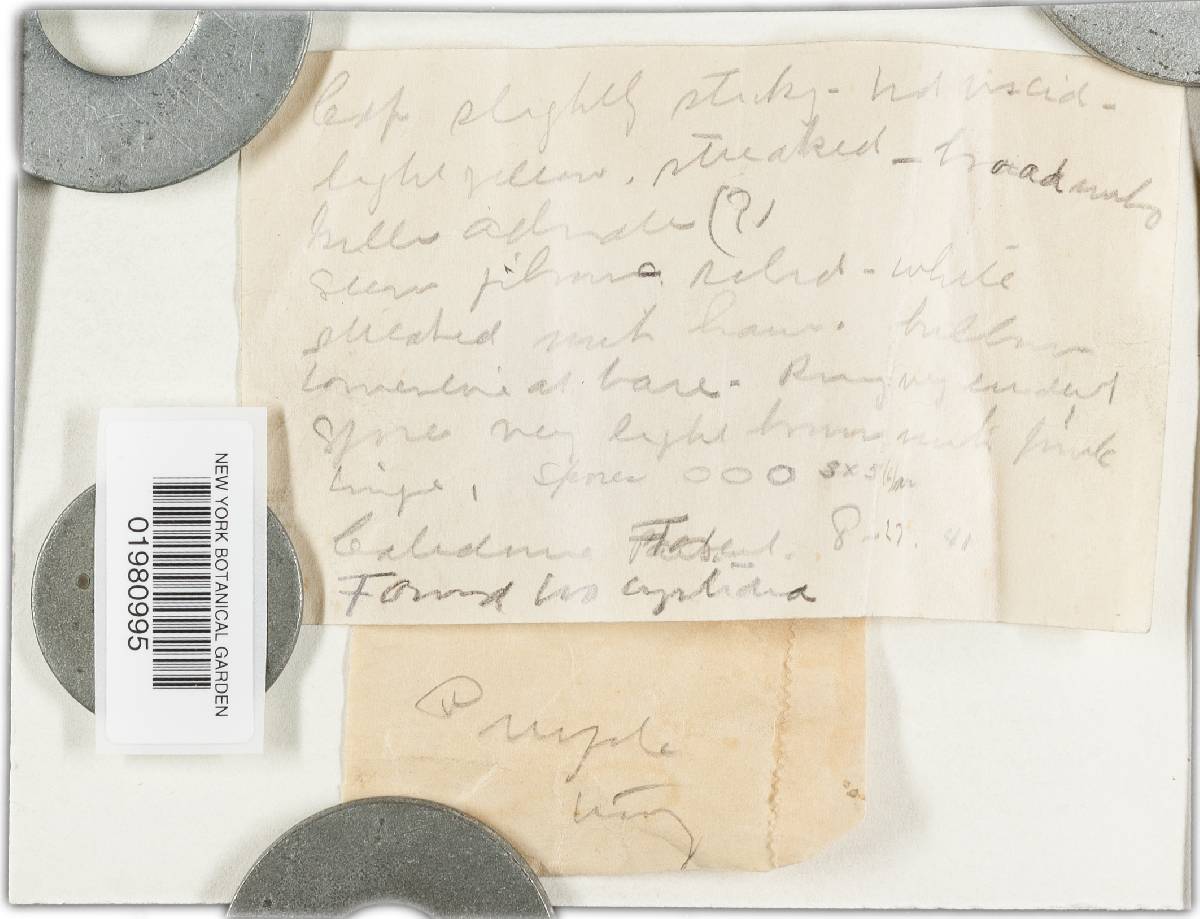 Cap slightly sticky - not viscid -
light yellow, streaked - broad umbo
Gills adnate (?)
Stem fibrous. Solid - white
streaked with brown.
tomentose at base. Ring very evident
Spores very light brown with pink
tinge, Spores OOO
Caledonia 8-17. 41
Found no cystidia
Purple
NEW YORK BOTANICAL GARDEN
01980995